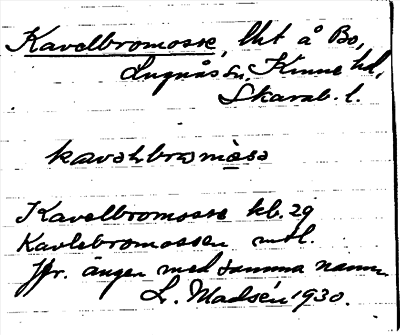 Kavelbromosse, lht å Bo,
Lugnås sn, Kinne hd,
Skarab. l.
kavəlbromåsə
Kavelbromosse kb. 29
Kavlebromossen mtl.
Jfr. ängen med samma namn
L. Madsén 1930.